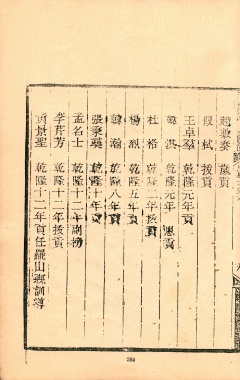 趙 歲貢
段 拭 拔貢
王卓 乾隆元年貢
韓 洪 乾隆元年 恩貢
杜 格 乾隆二年拔貢
楊 烈 乾隆五年貢
韓 瀚 乾隆八年貢
張秉 乾隆十年貢
孟名士 乾隆十二年副榜
李 芳 乾隆十二年拔貢
景聖 乾隆十二年貢任羅山縣訓導